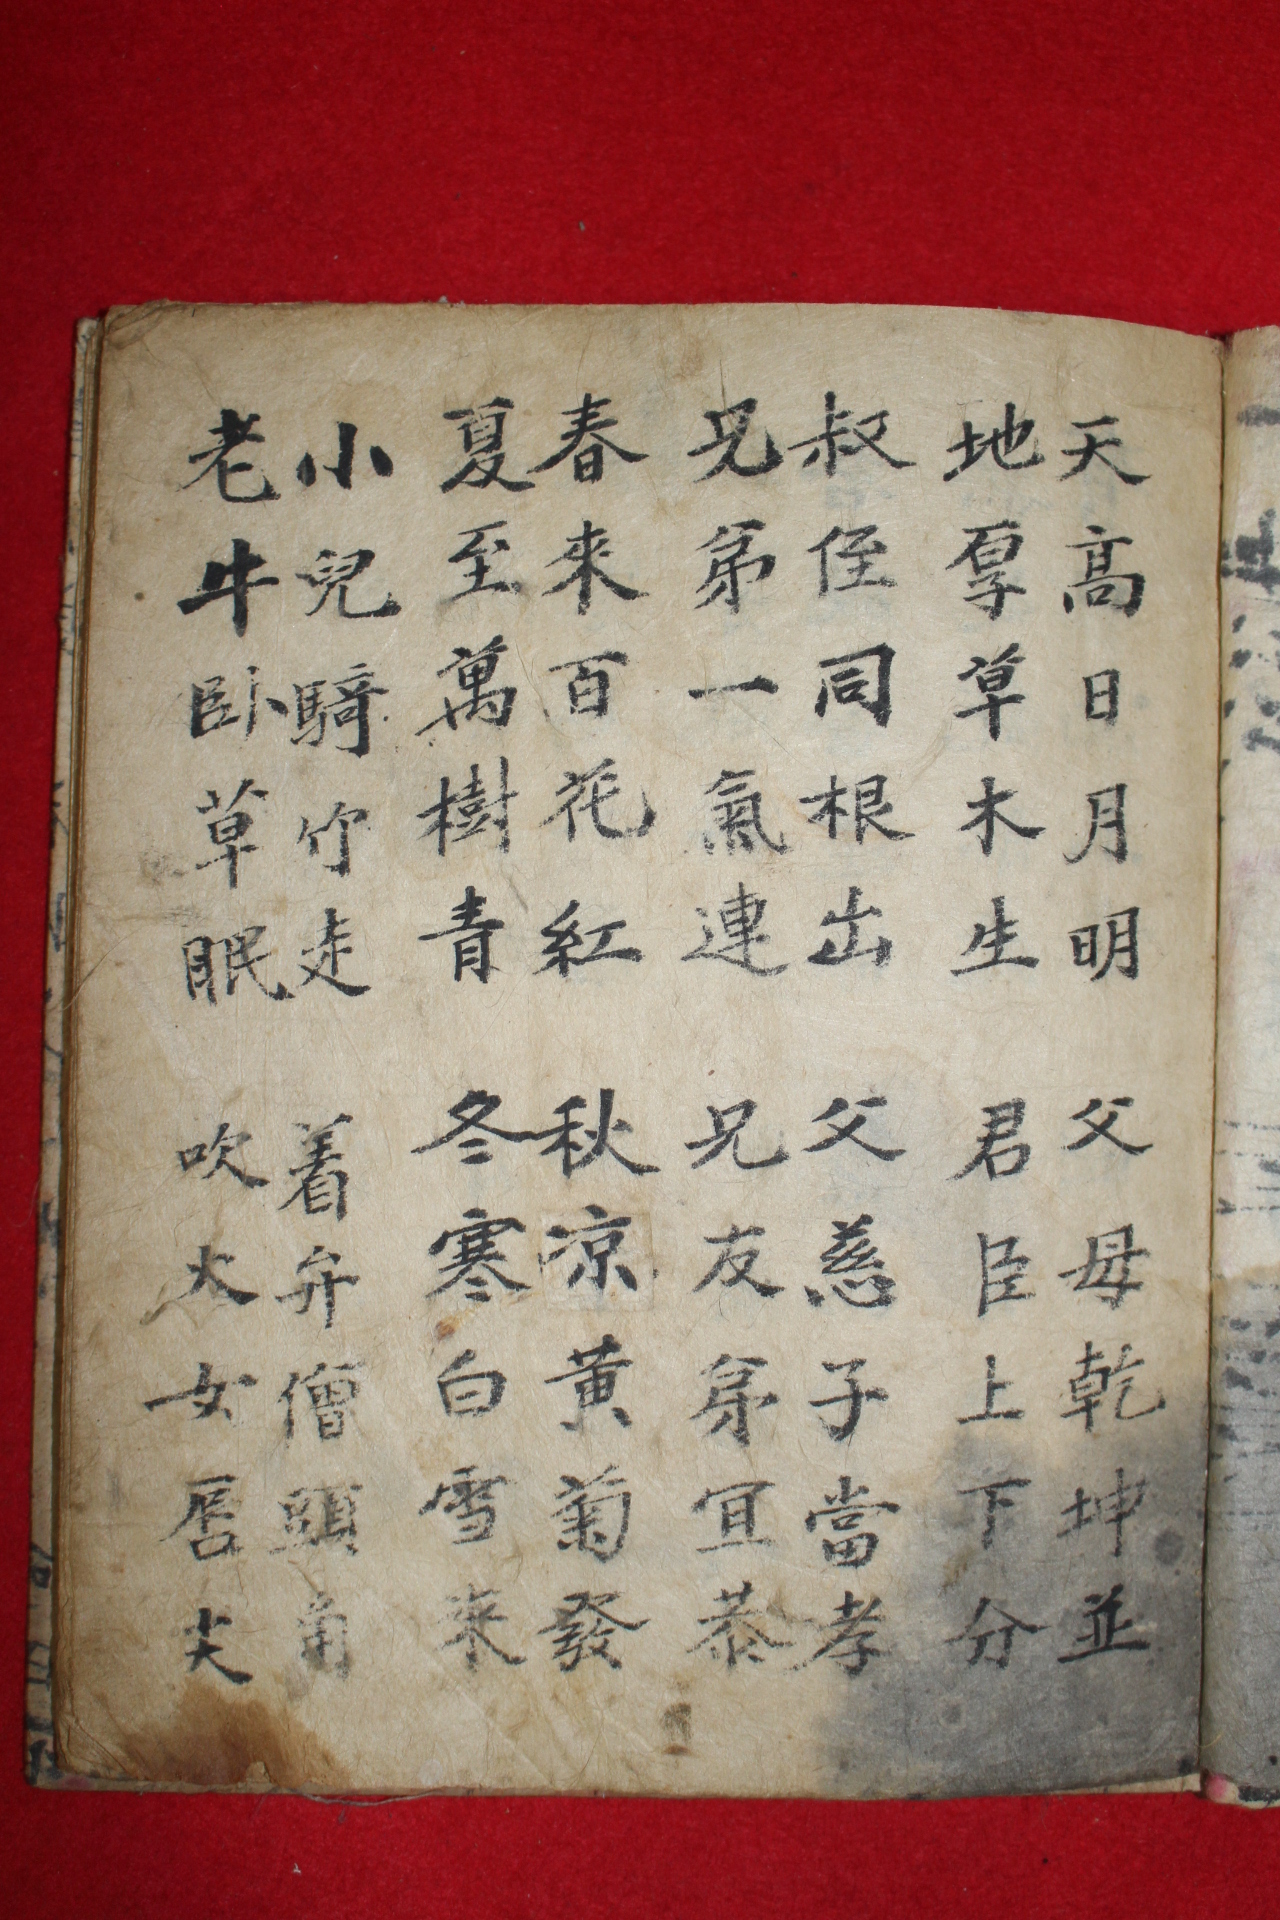 天高日月明 父母乾坤並
地厚草木生 君臣上下分
叔侄同根出 父慈子當孝
兄弟一氣連 兄友弟宜恭
春來百花紅 秋凉黃菊發
夏至萬樹青 冬寒白雪來
小兒騎竹走 着弁僧頭角
老牛臥草眠 吹火女唇尖